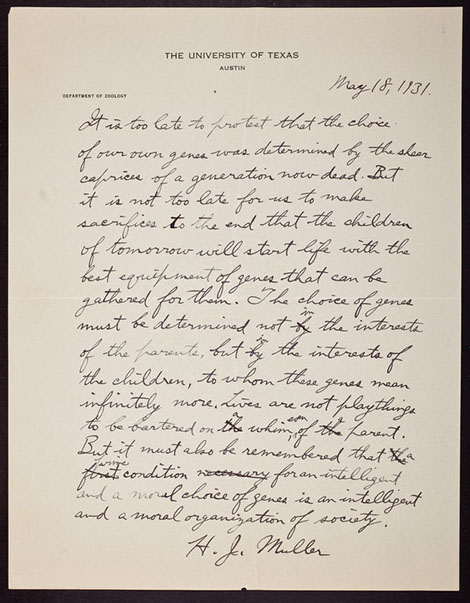 THE UNIVERSITY OF TEXAS
AUSTIN
DEPARTMENT OF ZOOLOGY
May 18, 1931.
It is too late to protest that the choice
of our own genes was determined by the sheer
caprices of a generation now dead. But
it is not too late for us to make
sacrifices to the end that the children
of tomorrow will start life with the
best equipment of genes that can be
gathered for them. The choice of genes
must be determined not by in the interests
of the parents, but by in the interests of
the children, to whom these genes mean
infinitely more. Lives are not playthings
to be bartered on the whim, of the parent.
But it must also be remembered that the a
first prime condition necessary for an intelligent
and a moral choice of genes is an intelligent
and a moral organization of society.
H. J. Muller